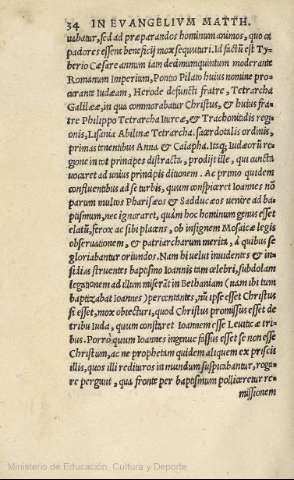 34 IN EVANGELIVM MATTH.
uabatur, sed ad præparandos hominum animos, quo ca
paciores essent beneficij mox sequuturi. Id factũ est Ty-
berio Cæsare annum iam decimumquintum moderante
Romanum Imperium, Pontio Pilato huius nomine pro-
curante Iudæam, Herode defuncti fratre, Tetrarcha
Galilææ, in qua commorabatur Christus, & huius fra-
tre Philippo Tetrarcha Iturææ, & Trachonitidis regio
onis, Lisania Abilinæ Tetrarcha. sacerdotalis ordinis,
primas tenentibus Anna & Caiapha. Itaq; Iudæorũ re-
gione in tot principes distracta, prodijt ille, qui cuncta
uocaret ad unius principis ditionem. Ac primo quidem
confluentibus ad se turbis, quum conspiceret Ioannes nõ
parum multos Pharisæos & Sadducæos uenire ad ba-
ptismum, nec ignoraret, quàm hoc hominum genus esset
elatũ, ferox ac sibi placens, ob insignem Mosaicæ legis
obseruationem, & patriarcharum merita, à quibus se
gloriabantur oriundos. Nam hi uelut inuidentes & in-
sidias struentes baptismo Ioannis tam celebri, subdolam
legationem ad illum miserãt in Bethaniam (nam ibi tum
baptizabat Ioannes) percontantes, nũ ipse esset Christus
si esset, mox obiecturi, quod Christus promissus esset de
tribu Iuda, quum constaret Ioannem esse Leuiticæ tri-
bus. Porrò quum Ioannes ingenue fassus esset se non esse
Christum, ac ne prophetam quidem aliquem ex priscis
illis, quos illi redituros in mundum suspicabantur, roga-
re pergunt, qua fronte per baptismum polliceretur re-
missionem
Ministerio de Educación, Cultura y Deporte